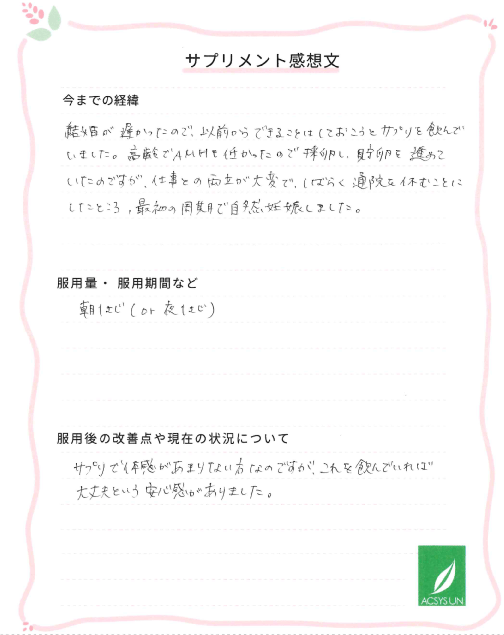 サプリメント感想文
今までの経緯
結婚が遅かったので、以前からできることはしておこうとサプリを飲んで
いました。高齢でAMHも低かったので採卵し、貯卵を進めて
いたのですが、仕事との両立が大変で、しばらく通院を休むことに
したところ、最初の周期で自然妊娠しました。
服用量・服用期間など
朝1包 (or 夜1包)
服用後の改善点や現在の状況について
サプリで体感があまりない方なのですが、これを飲んでいれば
大丈夫という安心感がありました。
ACSYS UN